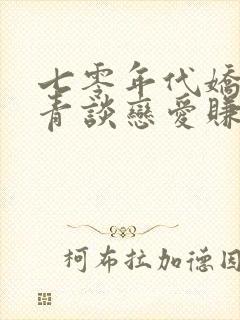 七零年代嬌
青談戀愛賺
柯布拉加德因